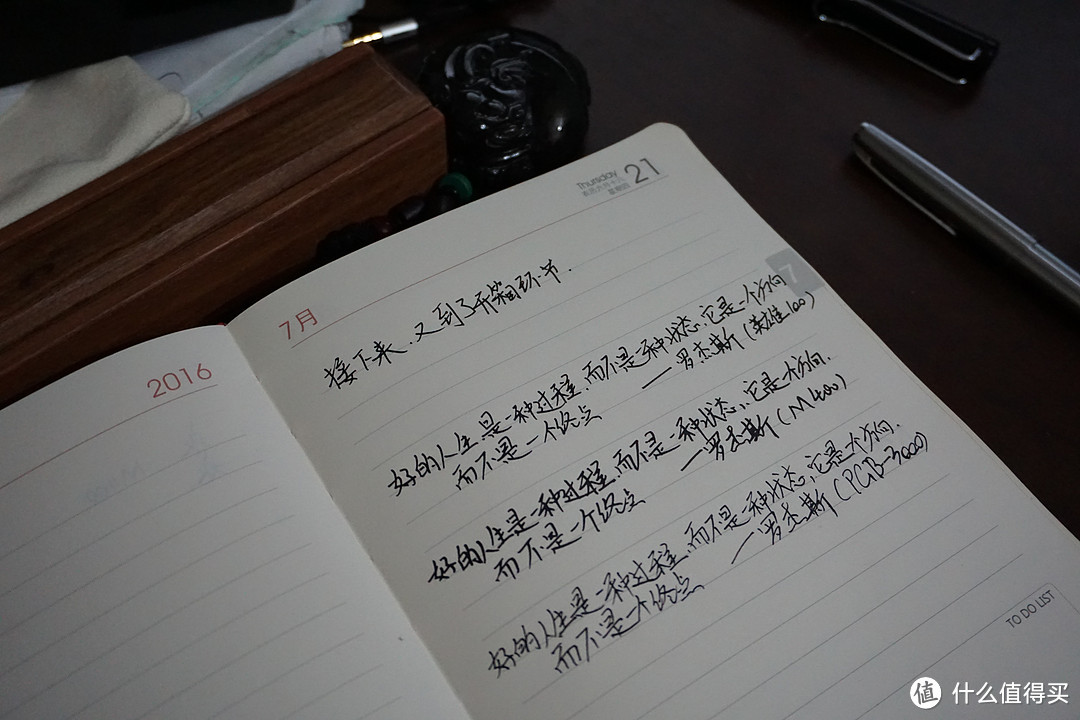 2016
7月
Thursday
21
星期四
7
接下来,又到了开箱环节.
好的人生是一种过程,而不是一种状态,它是一个方向
而不是一个终点 ——罗杰斯(英雄100)
好的人生是一种过程,而不是一种状态,它是一个方向.
而不是一个终点 ——罗杰斯(M400)
好的人生是一种过程,而不是一种状态,它是一个方向.
而不是一个终点 ——罗杰斯(PGB-3000)
TO DO LIST
值 什么值得买